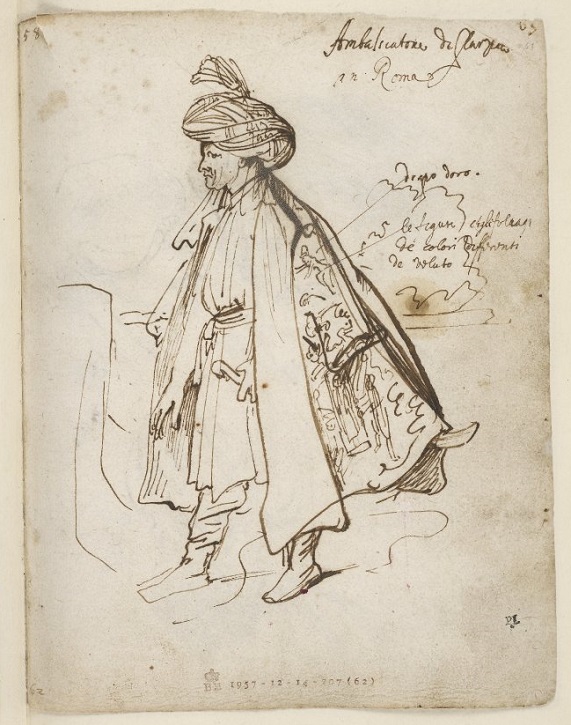 58
Ambasciatore di Persia
in Roma
drapo doro.
le figure
de colori differenti
de veluto
PL
62
BM 1957-12-14-207(62)